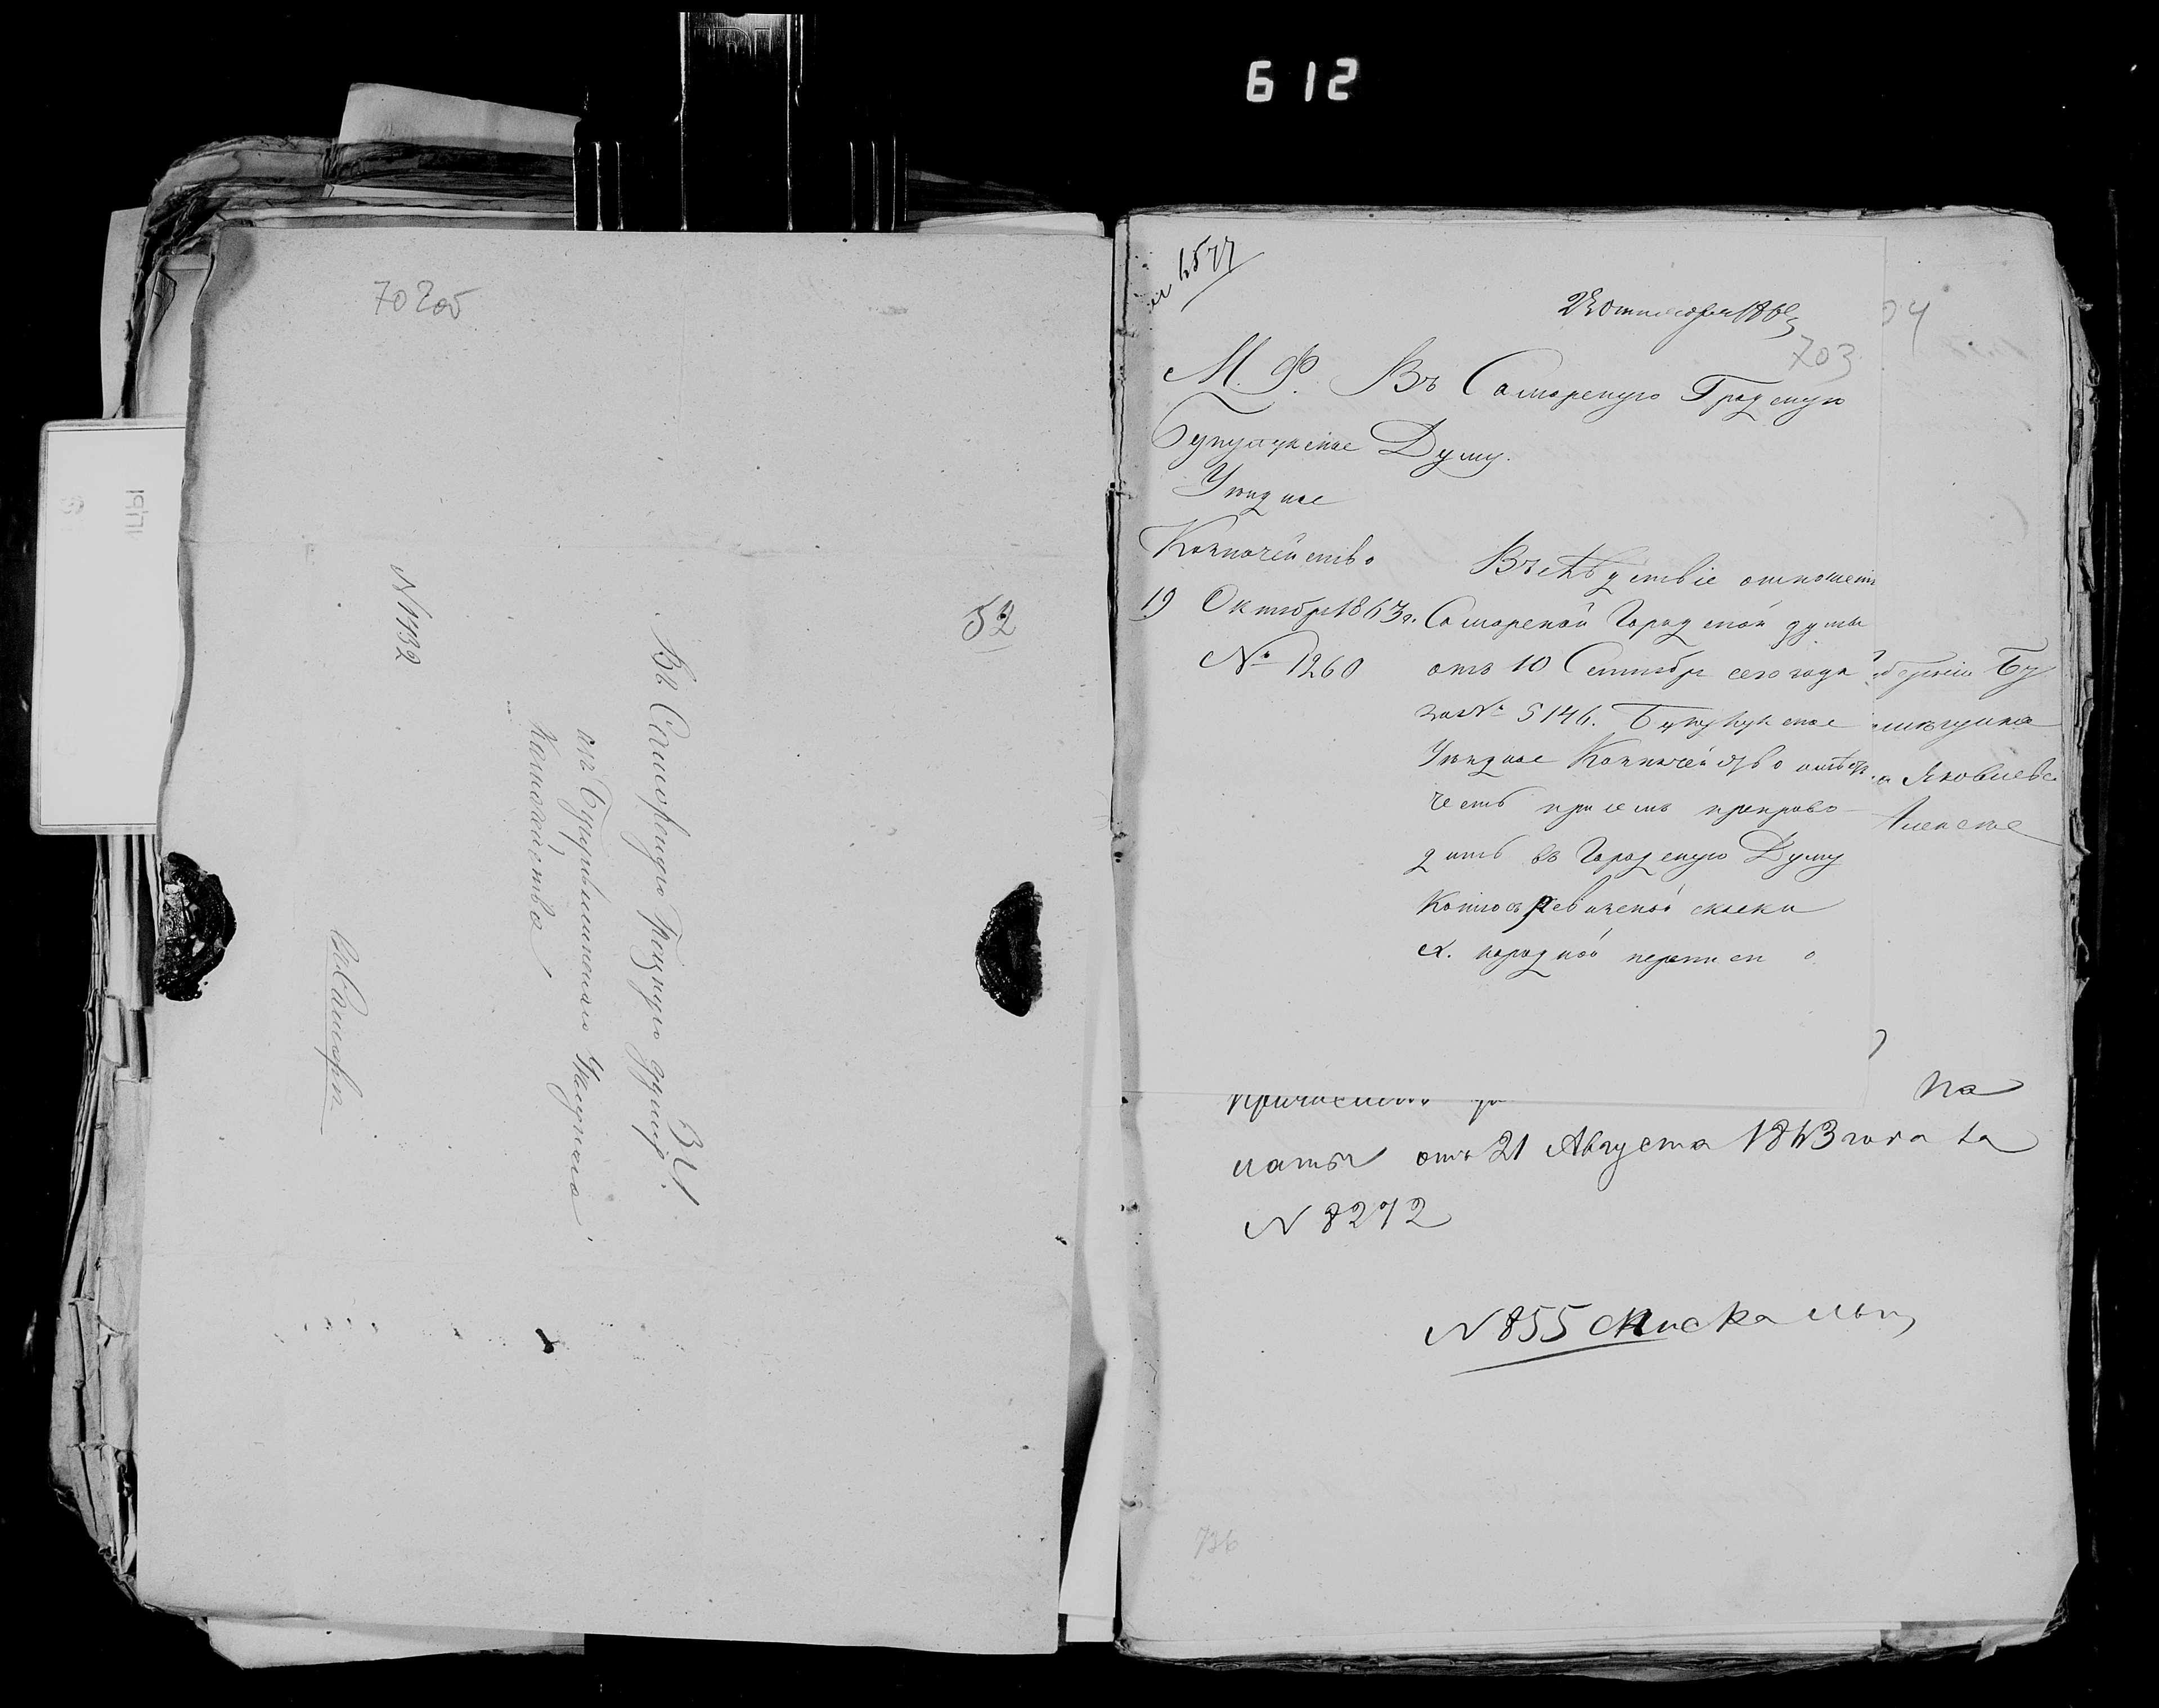 612
702об
52
Въ Самарскую Градскую думу.
изъ Бугурусланскаго Уѣзднаго
Казначейства
N 4432
въ Самару
1971
23 октября 1863
703
М. Ф. Въ Самарскую Градскую
Думу.
Уѣздное
Казначейство
19 Октября 1863 г.
№ 1260
Въ слѣдствіе отношенія
Самарской Городской думы
отъ 10 Сентября сего года
за № 5146. Бузулукское
Уѣздное Казначейство имѣетъ
честь при семъ препрово-
дить въ Городскую Думу
Копію съ ревизской сказки
X. народной переписи
Яковлева
на
латы отъ 21 Августа 1843 года за
N 8272
N 855
736